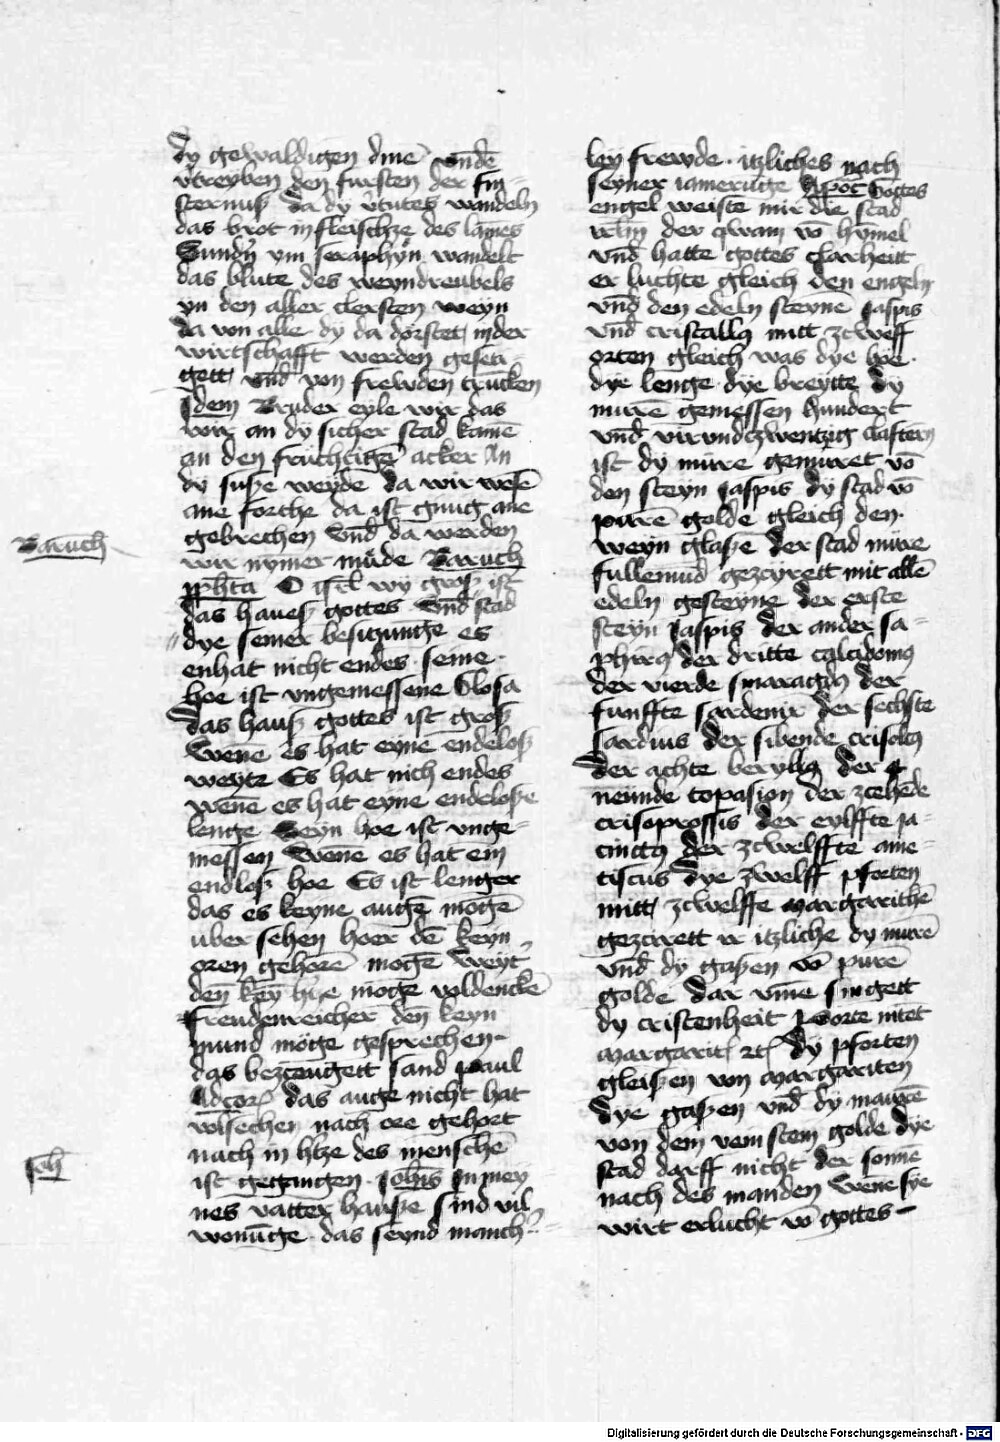 dy gewaldigen dine vnde
vtreyben den fursten der fin-
sternus da dy vtutes wandeln
das brot in fleischze des lames
Sundn vm seraphyn wandelt
das blute des weyndreubels
yn den aller clersten weyn
da von alle dy da dorstet in der
wirtschafft werden geseta-
gett vnd von frewden trucken
Jdem Bruder eyle wir das
wir an dy sicher stad kamē
an den fruchtigē acker An
dy susze weyde da wir wesē
ane forthe da ist gnug ane
gebrechen vnd da werden
wir nymer mude Baruch
pphta O isrl wy grosz ist
das hauesz gottes vnd stad
dye seiner besitzunge es
enhat nicht endes seine
hoe ist vngemessene Glosa
das hausz gottes ist grosz
Wenē es hat eynē endelosz
weyte Es hat nich endes
wenē es hat eyne endelosze
lenge Seyn hoe ist vnge-
messen Wenē es hat ein
endlosz hoe Es ist lenger
das es keyne auge moge
vber sehen hoer dē keyn
oren gehorē mogē weyt
den keȳ hᵉze moge voldenckē
freudenreicher den keyn
mund moge gesprechen
das bezceugett sand paul
Ad cor das auge nicht hat
volsechen nach ore gehort
nach in hᵉze des menschē
ist gegangen Johīs In mey
nes vatter hausze sind vil
wonūge das seynd manch-
Baruch
Joh
ley frewde itzliches nach
seyner iameruge Apoc Gottes
engel weiste mir die stad
irlm der qwam vō hymel
vnd hatte gottes clarheit
er luchte gleich den engeln
vnd den edeln steynē Jaspis
vnd cristallꝰ mitt zcwelff
orten gleich was dye hoe
dye lenge dye breytte dy
murē gemessen hundert
vnd virundczwentzig claftern
ist dy mure gemuret vō
den steyn Jaspis dy stad vō
purē golde gleich den
weyn glasze der stad mure
fullemūd gezcyrett mit allē
edeln gesteyne der erste
steyn Jaspis der ander sa-
phirꝰ der dritte calcidoniꝰ
der vierde smaragdꝰ der
funffte sardonix der sechste
sardius der sibende crisolitꝰ
der achte beryllꝰ der
neunde topasion der zcehēde
crisoprossis der eylffte ja-
cinctꝰ der zcwelffte ame-
tiscus dye zwelff pforten
mitt zcwelffe margarithē
gezcirett ir itzliche dy murē
vnd dy gaszen vō purē
golde dar vme singett
dy cristenheit Porte nitēt
margaritꝭ ꝛcꝭ dy pforten
gleiszen von margariten
dye gaszen vnd dy maurē
von dem reinstem golde dye
stad darff nicht der sonnē
nach des manden wene sye
wirt erlucht vō gottes-
Digitalisierung gefördert durch die Deutsche Forschungsgemeinschaft - DFG